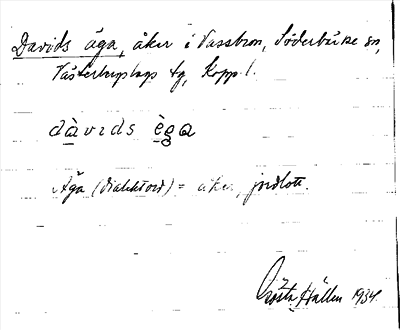 Davids äga, åker i Vassbron, Söderbärke sn,
Västerbergslags tg, Kopp. l.
dàvids ègа
Äga (dialektord) = åker, jordlott.
Gösta Hállen 1934.